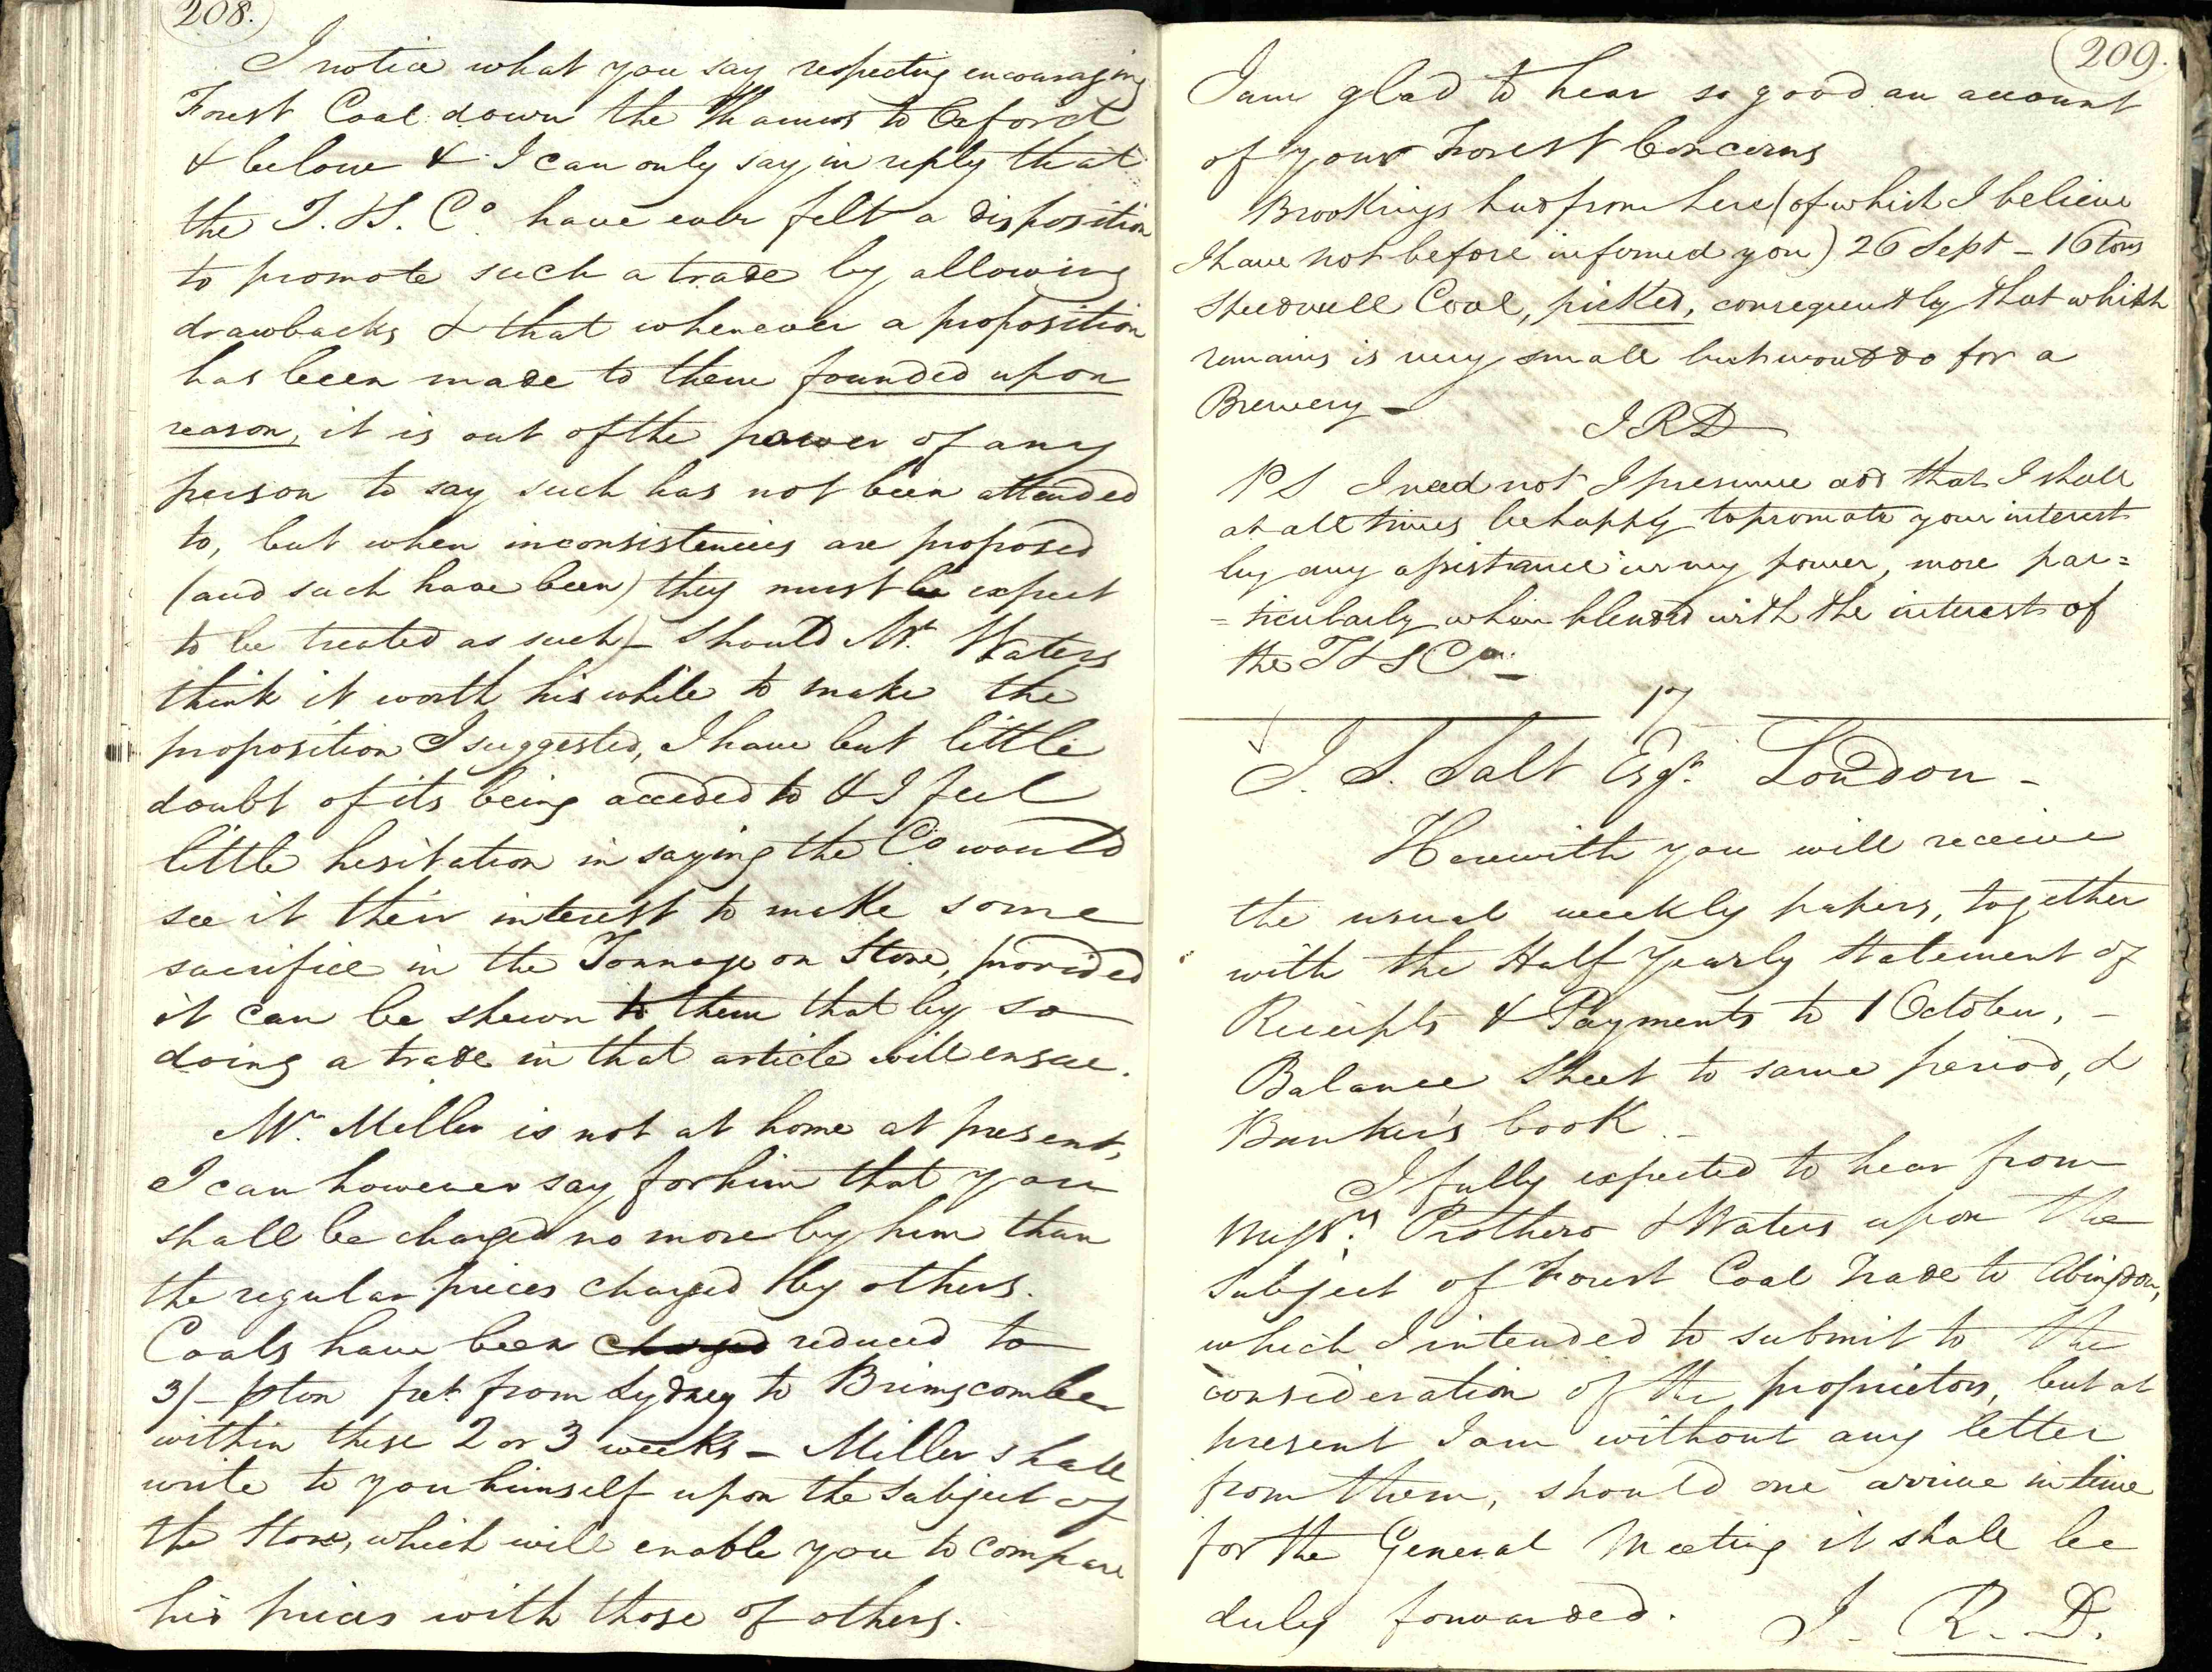 208.
I notice what you say respecting encouraging
Forest Coal down the Thames to Oxford
& below & I can only say in reply that
the T. & S. Co. have ever felt a disposition
to promote such a trade by allowing
drawbacks & that whenever a proposition
has been made to them founded upon
reason, it is out of the power of any
person to say such has not been attended
to, but when inconsistencies are proposed
(and such have been) they must be expect
to be treated as such) – Should Mr. Waters
think it worth his while to make the
proposition I suggested, I have but little
doubt of its being acceded to & I feel
little hesitation in saying the Co would
see it their interest to make some
sacrifice in the Tonnage on Stone, provided
it can be shewn to them that by so
doing a trade in that article will ensue.
Mr. Miller is not at home at present,
I can however say for him that you
shall be charged no more by him than
the regular prices charged by others.
Coals have been charged reduced to
3/- pton frt. from Lydney to Brimscombe
within these 2 or 3 weeks – Miller shall
write to you himself upon the subject of
the Stone, which will enable you to compare
his prices with those of others.
209.
I am glad to hear so good an account
of your Forest Concerns
Brookings had from here (of which I believe
I have not before informed you) 26 Sept – 16 tons
Speedwell Coal, picked, consequently that which
remains is very small but would do for a
Brewery –
IRD
PS I need not I presume add that I shall
at all times be happy to promote your interest
by any assistance in my power, more par=
=ticularly when blended with the interest of
the T & S Co. –
17
J. S. Salt Esqr. London –
Herewith you will receive
the usual weekly papers, together
with the Half Yearly Statement of
Receipts & Payments to 1 October, –
Balance Sheet to same period, &
Banker's book –
I fully expected to hear from
Messrs. Prothero & Waters upon the
subject of Forest Coal Trade to Abingdon,
which I intended to submit to the
consideration of the proprietors, but at
present I am without any letter
from them, should one arrive in time
for the General Meeting it shall be
duly forwarded. J. R. D.